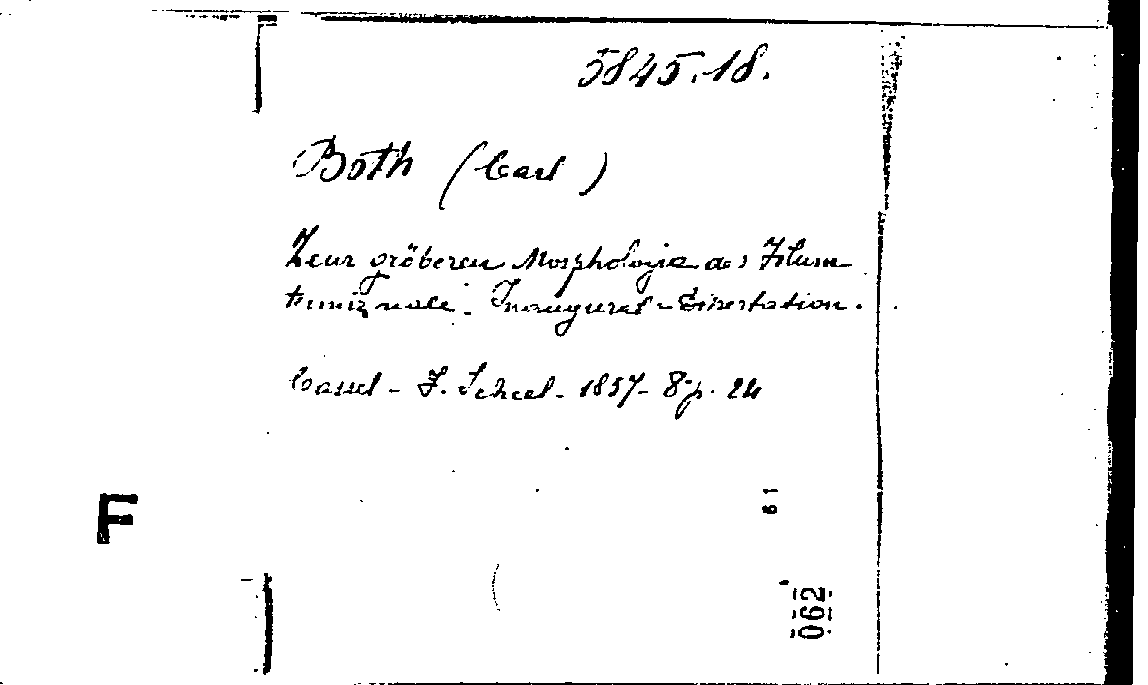 5845.18.
Both (Carl)
Zur gröberen Morphologie des Filum
terminale. Inaugural-Dissertation.
Cassel - F. Scheel - 1897 - 8° p. 24
F
61
062